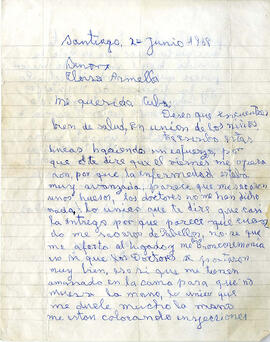 Santiago, 2 Junio 1968
Señora
Eloisa Armella
Mi querida
Deseo que
bien de salud, en union de los niños
estas
lineas haciendo un esfuerzo, por
que te dire que el viernes me opera
ron, por que la enfermedad estaba
muy avanzada, parece que me sacaron
unos huesos, los doctores no me han dicho
nada, lo unico que te digo que casi
la entrego por que parece que cuan
do me sacaron de Pabellon, no se que
me afecto al higado y me
los Doctores se portaron
muy bien, eso si que me tienen
amarrado en la cama para que no
mueva la mano, lo unico que
me duele mucho la mano
me estan colocando inyecciones